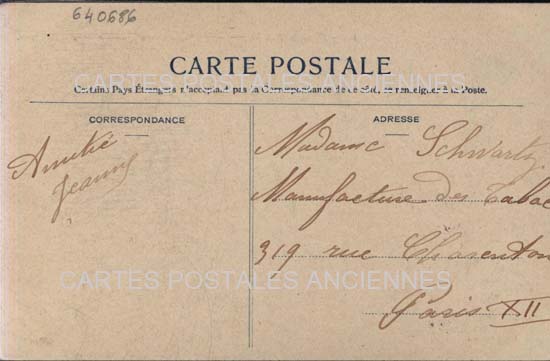 640686
CARTE POSTALE
CARTES POSTALES ANCIENNES
Certains Pays Étrangers n'acceptant pas la Correspondance de ce côté, se renseigner à la Poste.
CORRESPONDANCE
ADRESSE
Amitié
Jeanne
Madame Schwartz
Manufacture des Tabac
319 rue Charenton
CARTES POSTALES ANCIENNES
Paris XII